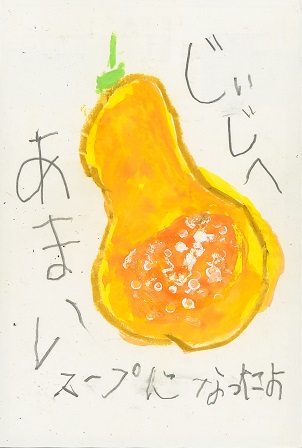 じぃじへ
あまい
スープになったよ